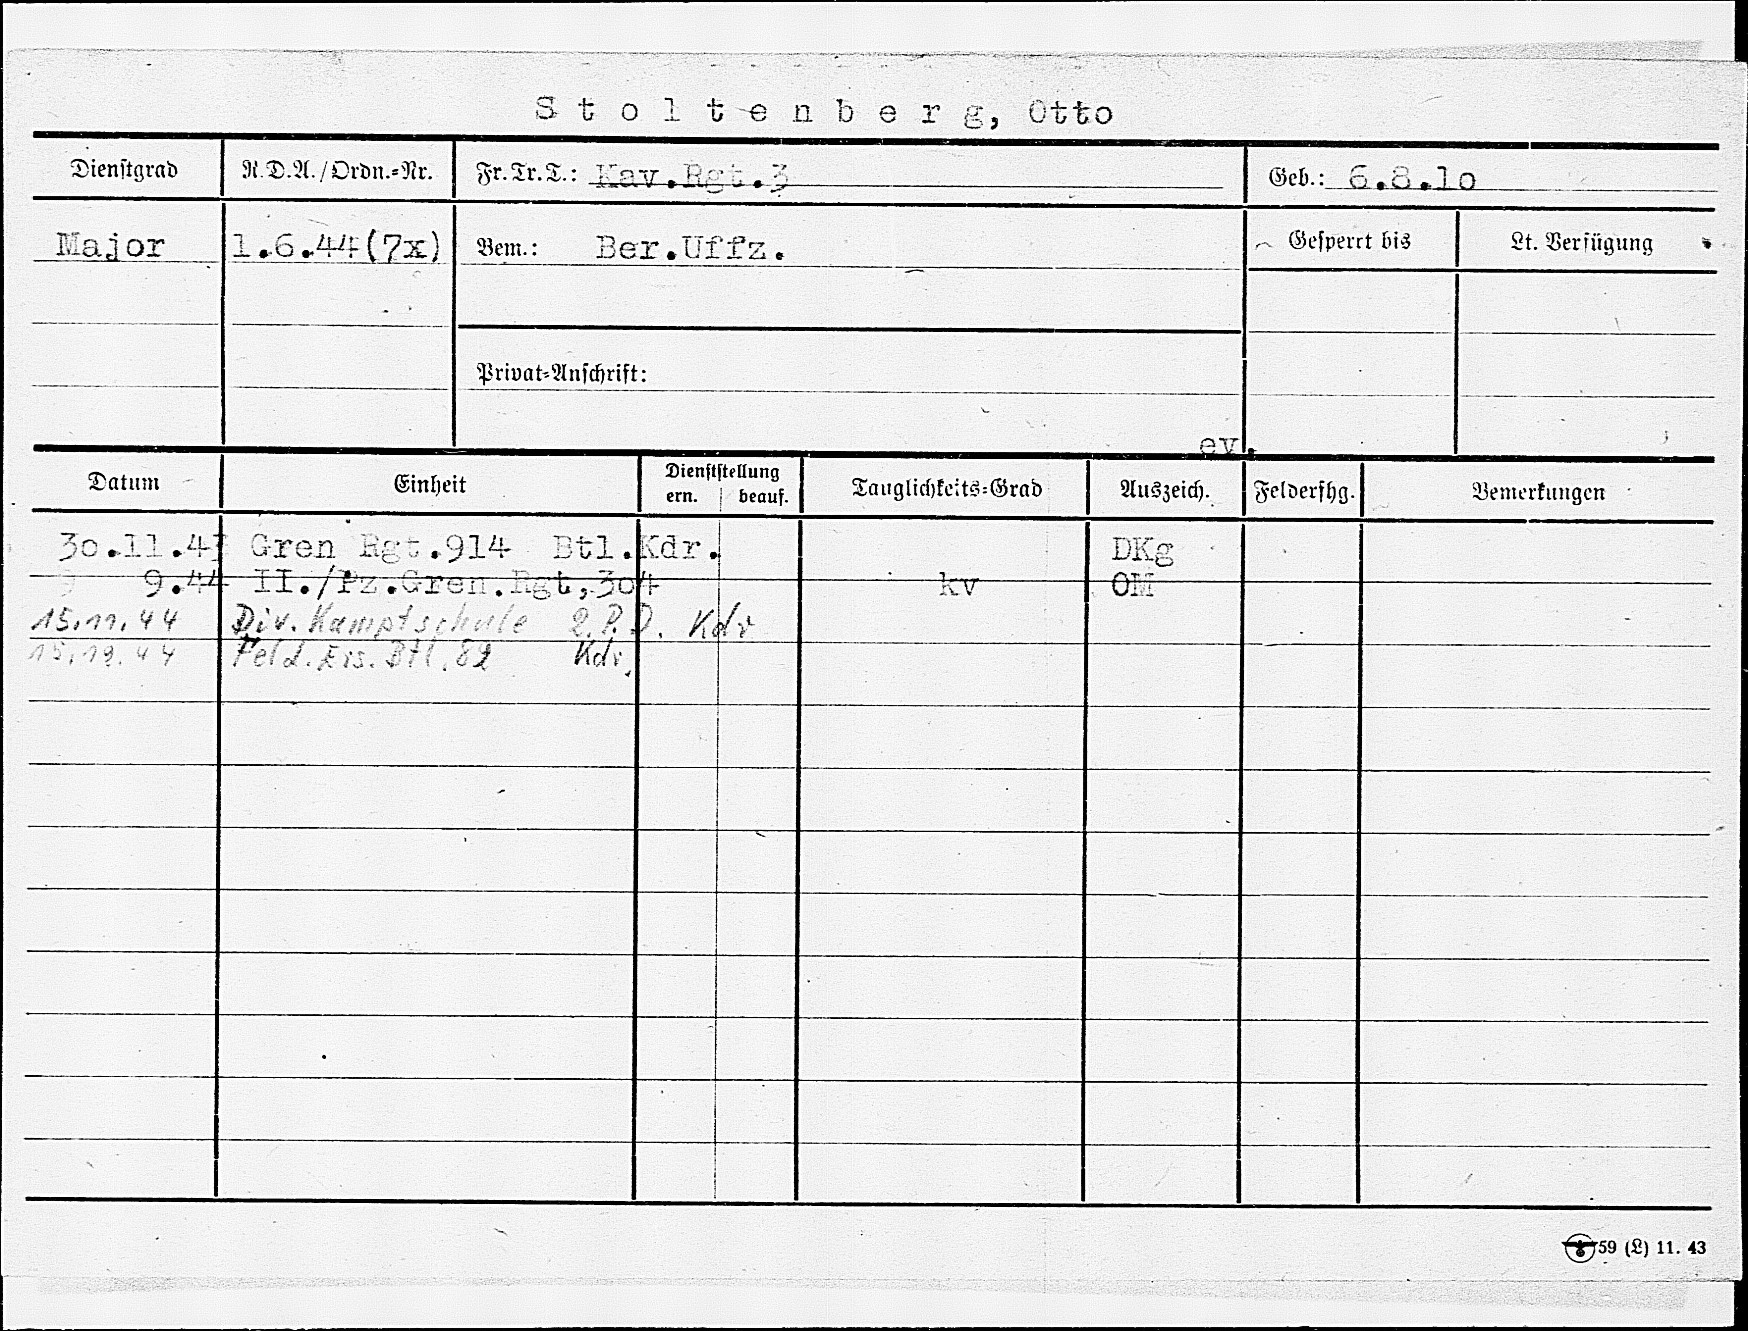 Stoltenberg, Otto
Dienstgrad R.D.A./Ordn.=Nr. Fr.Tr.T.: Kav.Rgt.3 Geb.: 6.8.1o
Major 1.6.44(7x) Bem.: Ber.Uffz. Gesperrt bis Lt. Verfügung
Privat=Anschrift:
ev.
Datum Einheit Dienststellung ern. beauf. Tauglichkeits=Grad Auszeich. Felderfhg. Bemerkungen
3o.11.43 Gren Rgt.914 Btl.Kdr. DKg
9.44 II./Pz.Gren.Rgt,3o4 kv OM
15.11.44 Div. Kampfschule 2.P.D. Kdr
15.12.44 Feld.Ers.Btl.82 Kdr.
59 (L) 11. 43